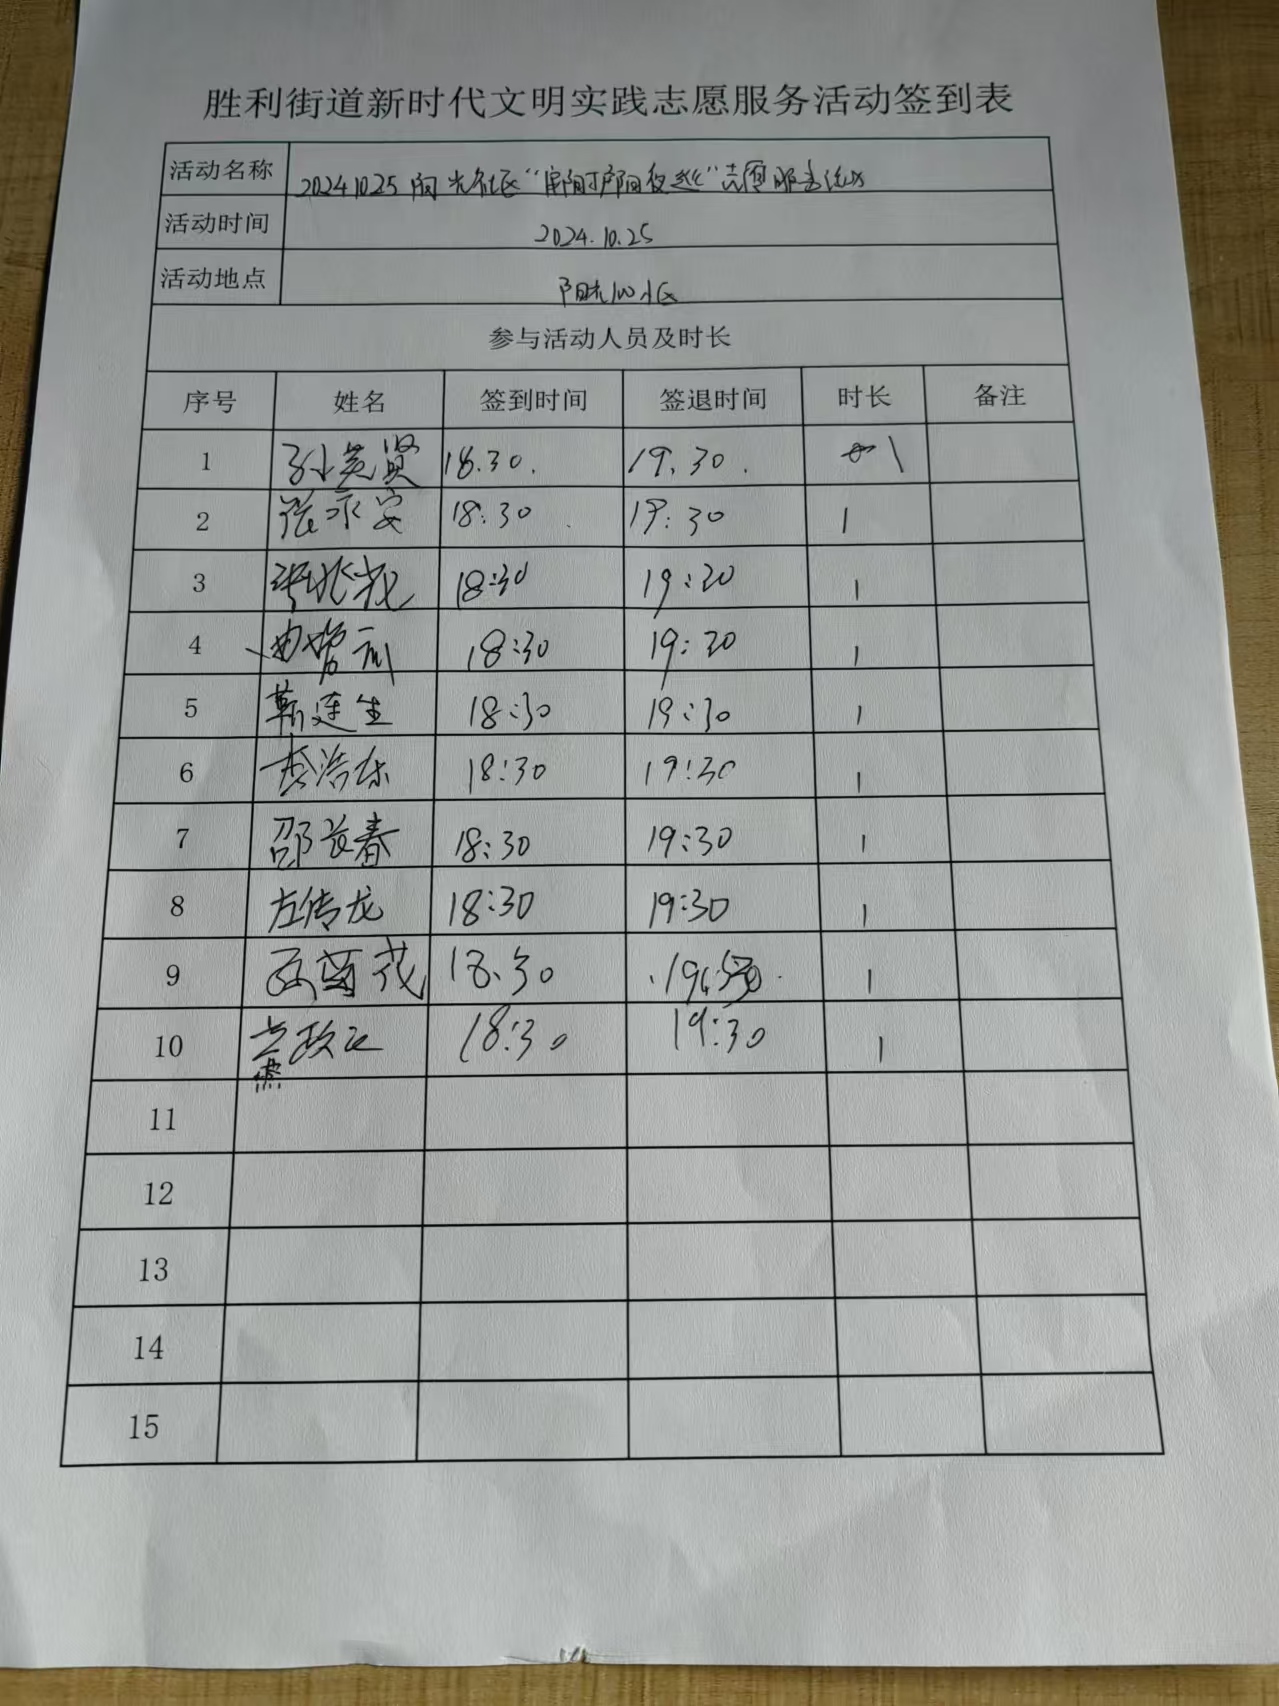 胜利街道新时代文明实践志愿服务活动签到表
活动名称 2024 10 25 阳光社区“ 夜巡”志愿服务活动
活动时间 2024.10.25
活动地点 阳光100小区
参与活动人员及时长
序号 姓名 签到时间 签退时间 时长 备注
1 孙英贤 18.30. 19.30. 1
2 张永安 18:30 19:30 1
3 18:30 19:30 1
4 18:30 19:30 1
5 靳连生 18:30 19:30 1
6 李浩东 18:30 19:30 1
7 邵长春 18:30 19:30 1
8 左传龙 18:30 19:30 1
9 18.30 1
10 18:30 19:30 1
11
12
13
14
15